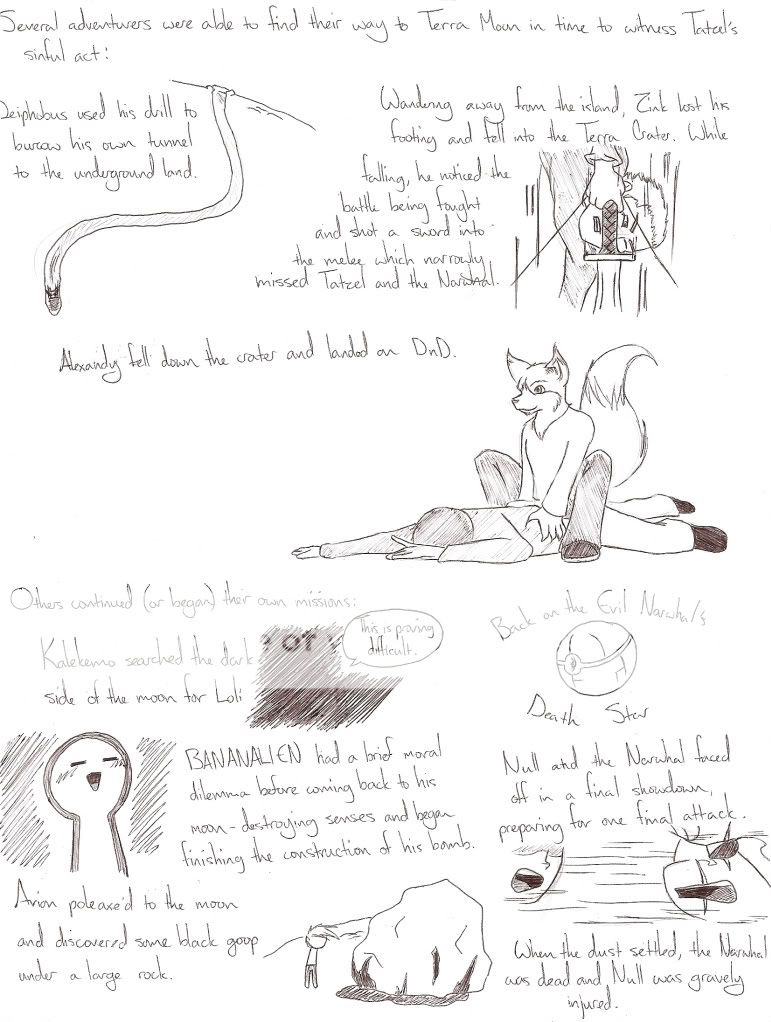 Several adventurers were able to find their way to Terra Moon in time to witness Tatzel's
sinful act:
Deiphobus used his drill to
burrow his own tunnel
to the underground land.
Wandering away from the island, Zink lost his
footing and fell into the Terra Crater. While
falling, he noticed the
battle being fought
and shot a sword into
the melee which narrowly
missed Tatzel and the Narwhal.
Alexandy fell down the crater and landed on DnD.
Others continued (or began) their own missions:
Kalekemo searched the dark
side of the moon for Loli
or
This is proving
difficult.
BANANALIEN had a brief moral
dilemma before coming back to his
moon-destroying senses and began
finishing the construction of his bomb.
Arion poleaxe'd to the moon
and discovered some black goop
under a large rock.
Back on the Evil Narwhal's
Death Star
Null and the Narwhal faced
off in a final showdown,
preparing for one final attack.
When the dust settled, the Narwhal
was dead and Null was gravely
injured.